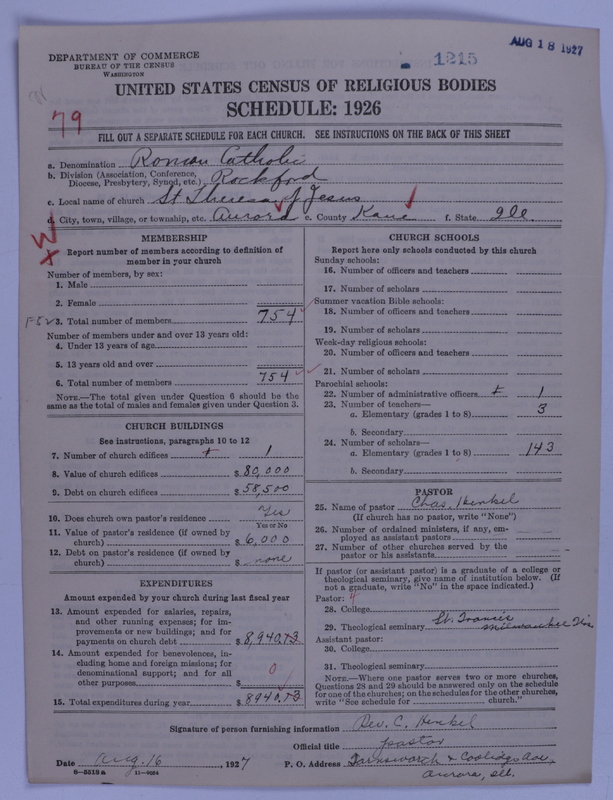 AUG 18 1927
1215
DEPARTMENT OF COMMERCE
BUREAU OF THE CENSUS
WASHINGTON
UNITED STATES CENSUS OF RELIGIOUS BODIES
SCHEDULE: 1926
79
FILL OUT A SEPARATE SCHEDULE FOR EACH CHURCH. SEE INSTRUCTIONS ON THE BACK OF THIS SHEET
a. Denomination Roman Catholic
b. Division (Association, Conference, Diocese, Presbytery, Synod, etc.) Rockford
c. Local name of church St Theresa of Jesus
d. City, town, village, or township, etc. Aurora e. County Kane f. State Ill.
MEMBERSHIP
Report number of members according to definition of
member in your church
Number of members, by sex:
1. Male
2. Female
3. Total number of members 754
Number of members under and over 13 years old:
4. Under 13 years of age
5. 13 years old and over
6. Total number of members 754
NOTE.—The total given under Question 6 should be the
same as the total of males and females given under Question 3.
CHURCH BUILDINGS
See instructions, paragraphs 10 to 12
7. Number of church edifices 1
8. Value of church edifices $ 80,000
9. Debt on church edifices $ 58,500
10. Does church own pastor's residence Yes
Yes or No
11. Value of pastor's residence (if owned by
church) $ 6,000
12. Debt on pastor's residence (if owned by
church) $ none
EXPENDITURES
Amount expended by your church during last fiscal year
13. Amount expended for salaries, repairs,
and other running expenses; for im-
provements or new buildings; and for
payments on church debt $ 8,940.73
14. Amount expended for benevolences, in-
cluding home and foreign missions; for
denominational support; and for all
other purposes $ 0
15. Total expenditures during year $ 8940.73
CHURCH SCHOOLS
Report here only schools conducted by this church
Sunday schools:
16. Number of officers and teachers
17. Number of scholars
Summer vacation Bible schools:
18. Number of officers and teachers
19. Number of scholars
Week-day religious schools:
20. Number of officers and teachers
21. Number of scholars
Parochial schools:
22. Number of administrative officers 1
23. Number of teachers—
a. Elementary (grades 1 to 8) 3
b. Secondary
24. Number of scholars—
a. Elementary (grades 1 to 8) 143
b. Secondary
PASTOR
25. Name of pastor Chas. Henkel
(If church has no pastor, write "None")
26. Number of ordained ministers, if any, em-
ployed as assistant pastors
27. Number of other churches served by the
pastor or his assistants
If pastor (or assistant pastor) is a graduate of a college or
theological seminary, give name of institution below. (If
not a graduate, write "No" in the space indicated.)
Pastor:
28. College
29. Theological seminary St. Francis Milwaukee Wis
Assistant pastor:
30. College
31. Theological seminary
NOTE.—Where one pastor serves two or more churches,
Questions 28 and 29 should be answered only on the schedule
for one of the churches; on the schedules for the other churches,
write "See schedule for church."
Signature of person furnishing information Rev. C. Henkel
Official title pastor
Date Aug. 16, 1927 P. O. Address Farnsworth & Coolidge Ave,
Aurora, Ill.
6—5518 a 11—9064